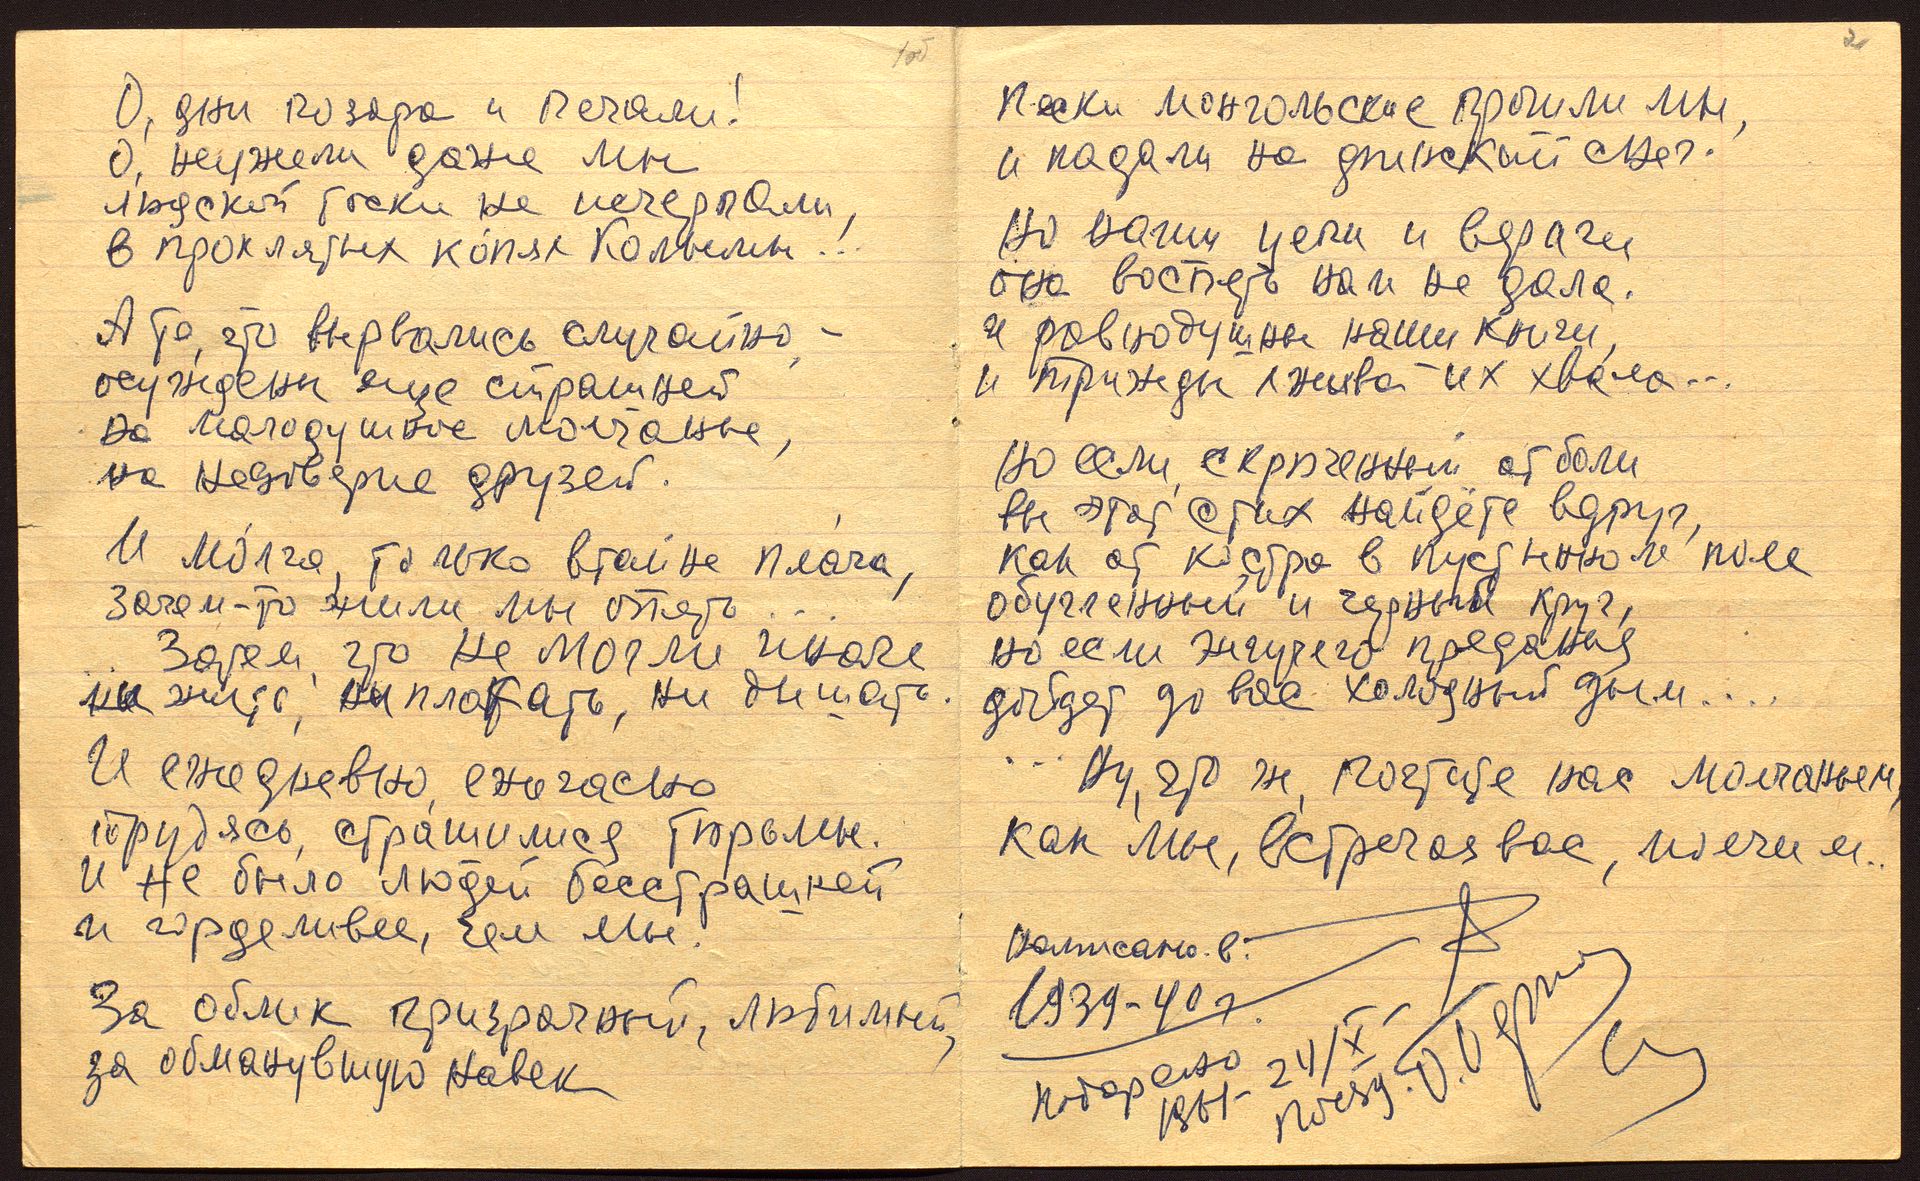 1об
О, дни позора и печали!
О, неужели даже мы
людской тоски не исчерпали,
в проклятых ко́пях Колымы!!
А те, что вырвались случайно, –
осуждены еще страшней
на малодушное молчанье,
на недоверие друзей.
И мо́лча, только втайне пла́ча,
Зачем-то жили мы опять...
... Затем, что не могли иначе
ни жить, ни плакать, ни дышать.
И ежедневно, ежечасно
трудясь, страшилися тюрьмы.
И не было людей бесстрашней
и горделивее, чем мы.
За облик призрачный, любимый,
за обманувшую навек
2
Пески монгольские прошли мы,
и падали на финский снег.
Но наши цепи и вериги
она воспеть нам не дала.
и равнодушны наши книги,
и трижды лжива их хвала...
Но если, скрюченный от боли
вы этот стих найдёте вдруг,
как от костра в пустынном поле
обугленный и черный круг,
но если жгучего преданья
дойдет до вас холодный дым....
... Ну, что ж, почтите нас молчаньем,
как мы, встречая вас, молчим..
Написано в
1939-40 г.
Подарено
1961 – 24/X
поезд. О. Берг